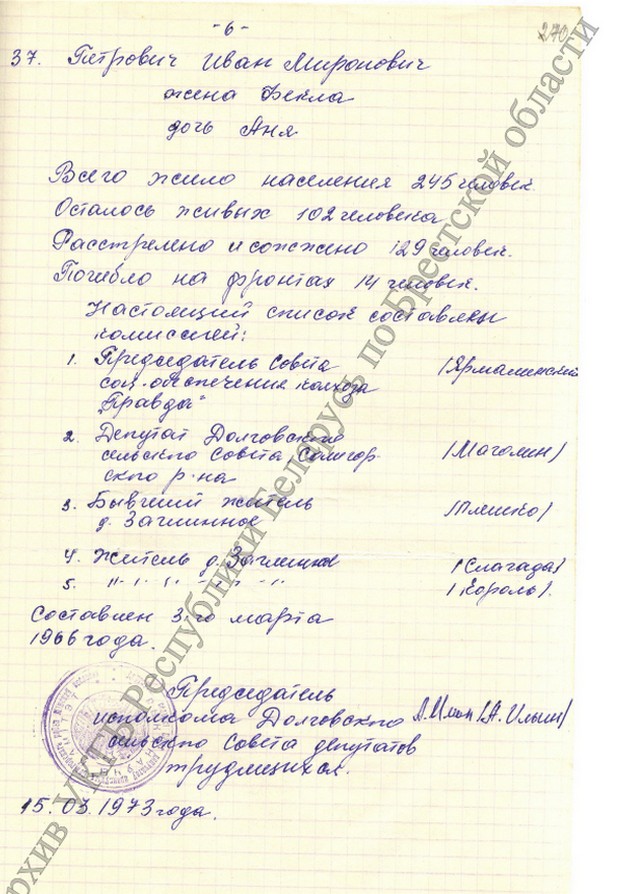 -6-
270
37. Петрович Иван Миронович
жена Фекла
дочь Аня
Всего жило населения 245 человек
Осталось живых 102 человека
Расстрелено и сожжено 129 человек.
Погибло на фронтах 14 человек.
Настоящий список составлен
комиссией:
1. Председатель Совета
соц. обеспечения колхоза
"Правда"
2. Депутат Долговского /Маголин/
сельского Совета Солигор
ского р-на
3. Бывший житель /Плешко/
д. Заглинное
4. Житель д. Заглинное /Слагада/
5. "-"-"-"-"-" /Король/.
Составлен 3го марта
1966 года.
Председатель
исполкома Долговского (А. Ильин)
сельского Совета депутатов
трудящихся.
15.03.1973 года.
архив УКГБ Республики Беларусь по Брестской области